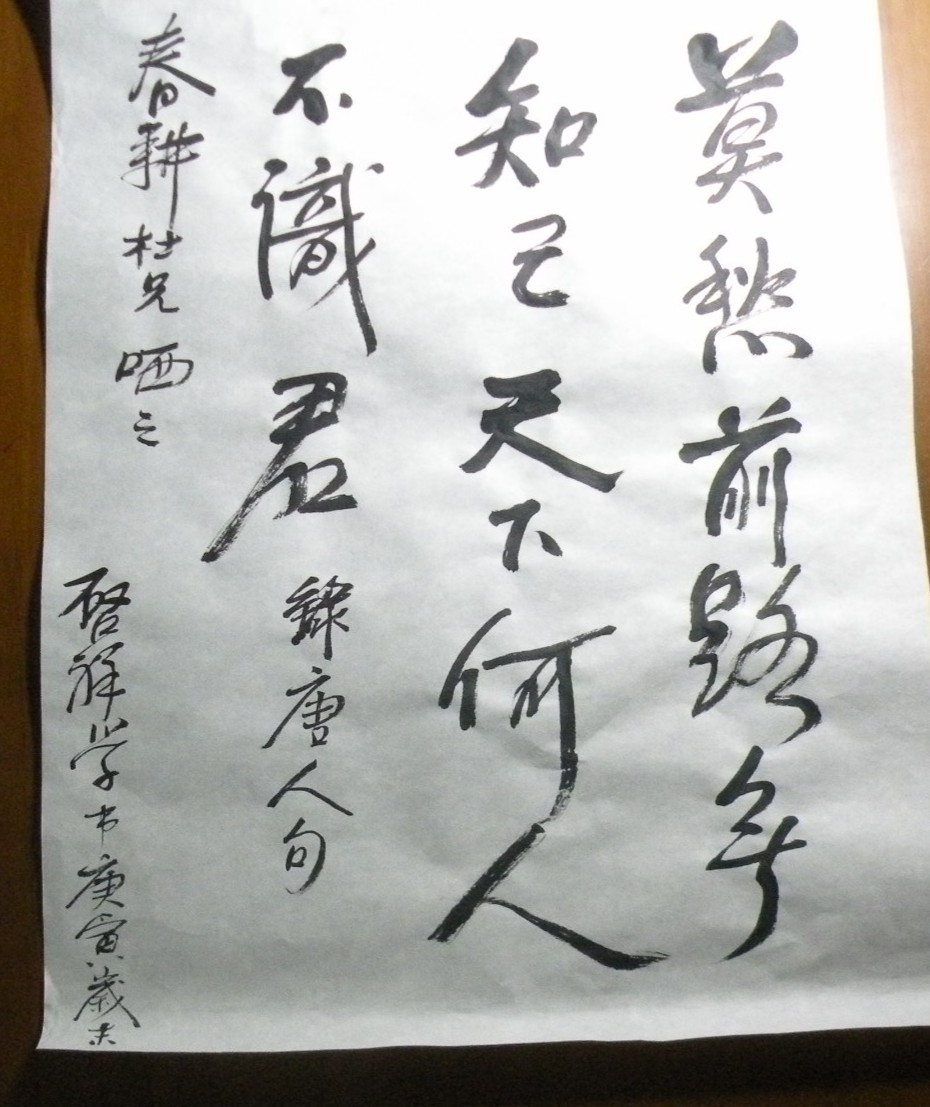 莫愁前路無
知己天下何人
不識君 錄唐人句
春耕杜兄哂之
啓祥学书庚寅歲末